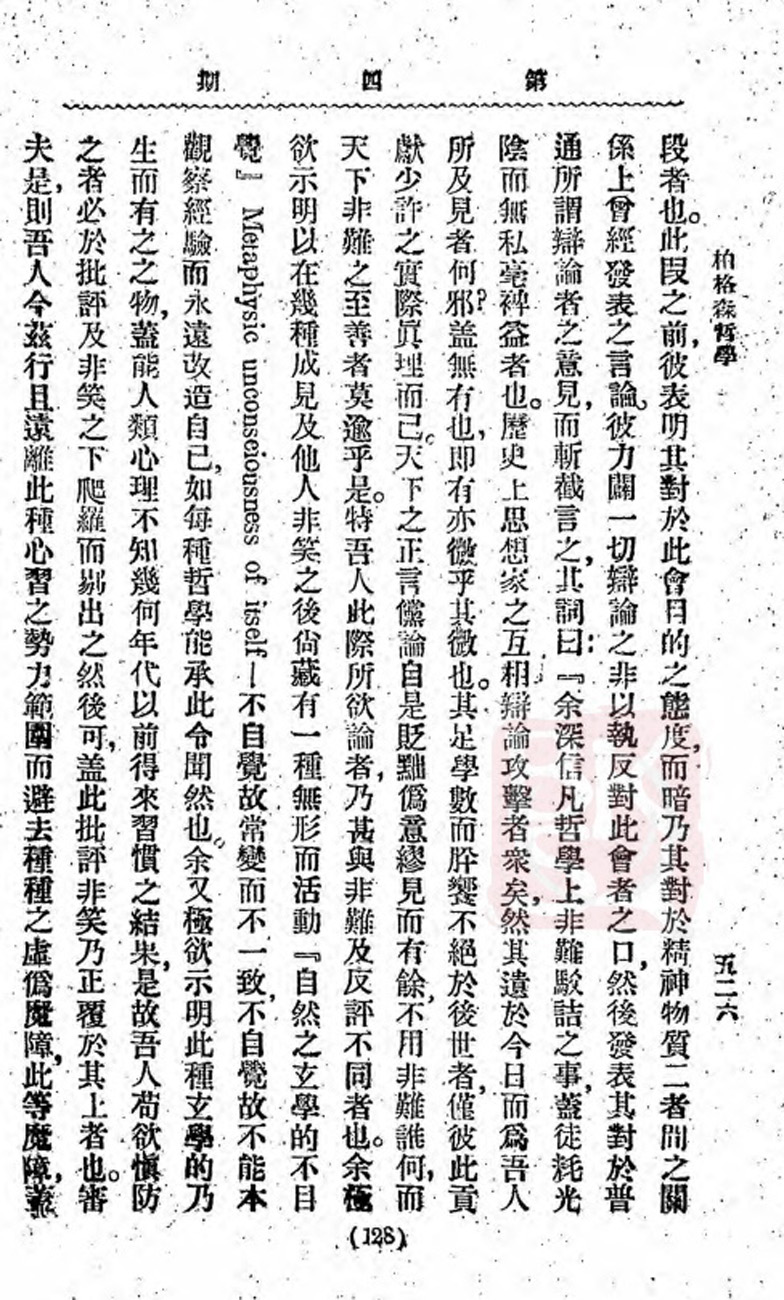 第四期
柏格森哲學
五二六
段者也。此段之前，彼表明其對於此會目的之態度，而暗乃其對於精神物質二者間之關
係上曾經發表之言論。彼力闢一切辯論之非以執反對此會者之口，然後發表其對於普
通所謂辯論者之意見，而斬截言之，其詞曰：『余深信凡哲學上非難駁詰之事，蓋徒耗光
陰而無私毫裨益者也。歷史上思想家之互相辯論攻擊者衆矣，然其遺於今日而爲吾人
所及見者何邪？盖無有也，即有亦微乎其微也。其足學數而肸饗不絕於後世者，僅彼此貢
獻少許之實際眞理而已。天下之正言儻論自是貶黜僞意繆見而有餘，不用非難誰何，而
天下非難之至善者莫逾乎是。特吾人此際所欲論者，乃甚與非難及反評不同者也。余極
欲示明以在幾種成見及他人非笑之後尙藏有一種無形而活動『自然之玄學的不自
覺』 Metaphysic unconseiousness of itself—不自覺故常變而不一致，不自覺故不能本
觀察經驗而永遠改造自己，如每種哲學能承此令聞然也。余又極欲示明此種玄學的乃
生而有之之物，蓋能人類心理不知幾何年代以前得來習慣之結果，是故吾人苟欲愼防
之者必於批評及非笑之下爬羅而剔出之然後可，盖此批評非笑乃正覆於其上者也。審
夫是，則吾人今茲行且遠離此種心習之勢力範圍而避去種種之虛僞魔障，此等魔障，蓋
(128)